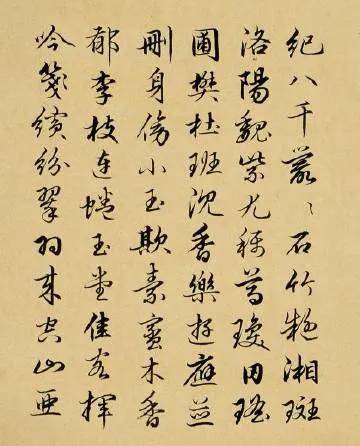 紀八千叢〻石竹艷湘斑
洛陽魏紫尤稱尊瓊田瑤
圃樊杜班沉香樂遊應並
刪身傍小玉欺素蜜木香
都李枝連蟠玉堂佳客揮
吟箋繽紛翠羽來空山亞